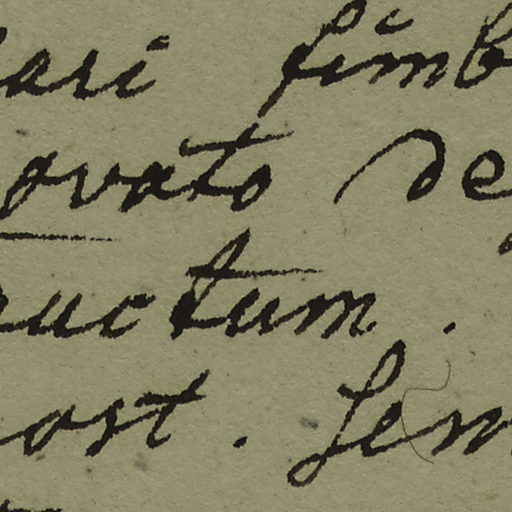 ari fimb
ovato de
uctum.
ost. Sem